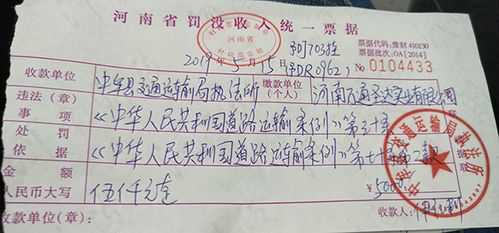 河南省罚没收入统一票据
河南省
票据代码:豫财 410230
票据批次:OA[2014]
2019年5月15日
№ 0104433
收款单位 中牟县交通运输局执法所 缴款单位(个人) 河南万通圣达实业有限公司
违法(章)事项 《中华人民共和国道路运输条例》第三十条
处罚依据 《中华人民共和国道路运输条例》第七十条第二款
金额
人民币大写 伍仟元整 ¥5000
收款单位(章): 收款人:
交通运输局执法所